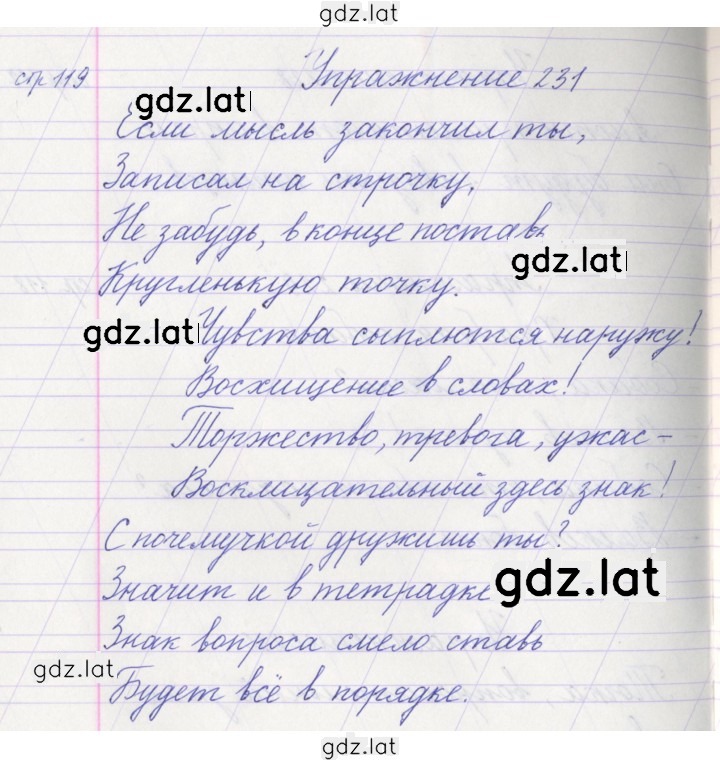 gdz.lat
стр 119 Упражнение 231
gdz.lat
Если мысль закончил ты,
Записал на строчку,
Не забудь, в конце поставь
gdz.lat
Кругленькую точку.
gdz.lat Чувства сыплются наружу!
Восхищение в словах!
Торжество, тревога, ужас –
Восклицательный здесь знак!
С почемучкой дружишь ты?
Значит и в тетрадке gdz.lat
Знак вопроса смело ставь
gdz.lat Будет всё в порядке.
gdz.lat